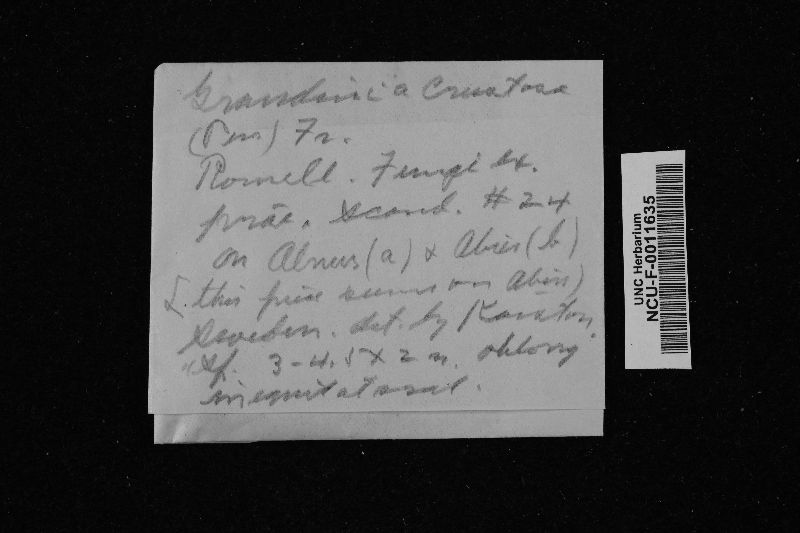 Grandinia Crustosa
(Pers) Fr.
Romell. Fungi Ex.
präe. Scand. #24
on Alnus (a) & Abies (b)
this piece seems on Abies)
Sweden. det. by Karsten.
"Sp. 3-4.5 x 2 u. oblong
inequilateral.
UNC Herbarium
NCU-F-0011635